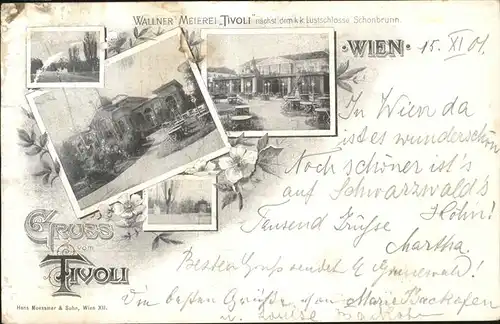 WALLNER'S MEIEREI „TIVOLI" nächst dem k.k. Lustschlosse Schönbrunn.
·WIEN·
15. XI 01
In Wien da
ist es wunderschön
Noch schöner ist's
auf Schwarzwald's
Höhn!
Tausend Grüße
Martha.
GRUSS
vom
TIVOLI
Besten Gruß sendet
Die besten Grüße von Marie Backofen
u. Louise
Hans Nuessner & Sohn, Wien XII.